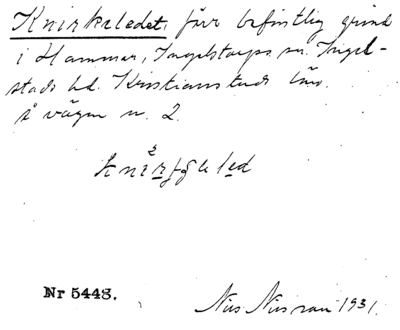 Knirkeledet, förr befintlig grind
i Hammar, Ingelstorps sn. Ingel-
stads hd. Kristianstads län.
å vägen n. 2.
Nr 5443.
Nils Nilsson 1931.